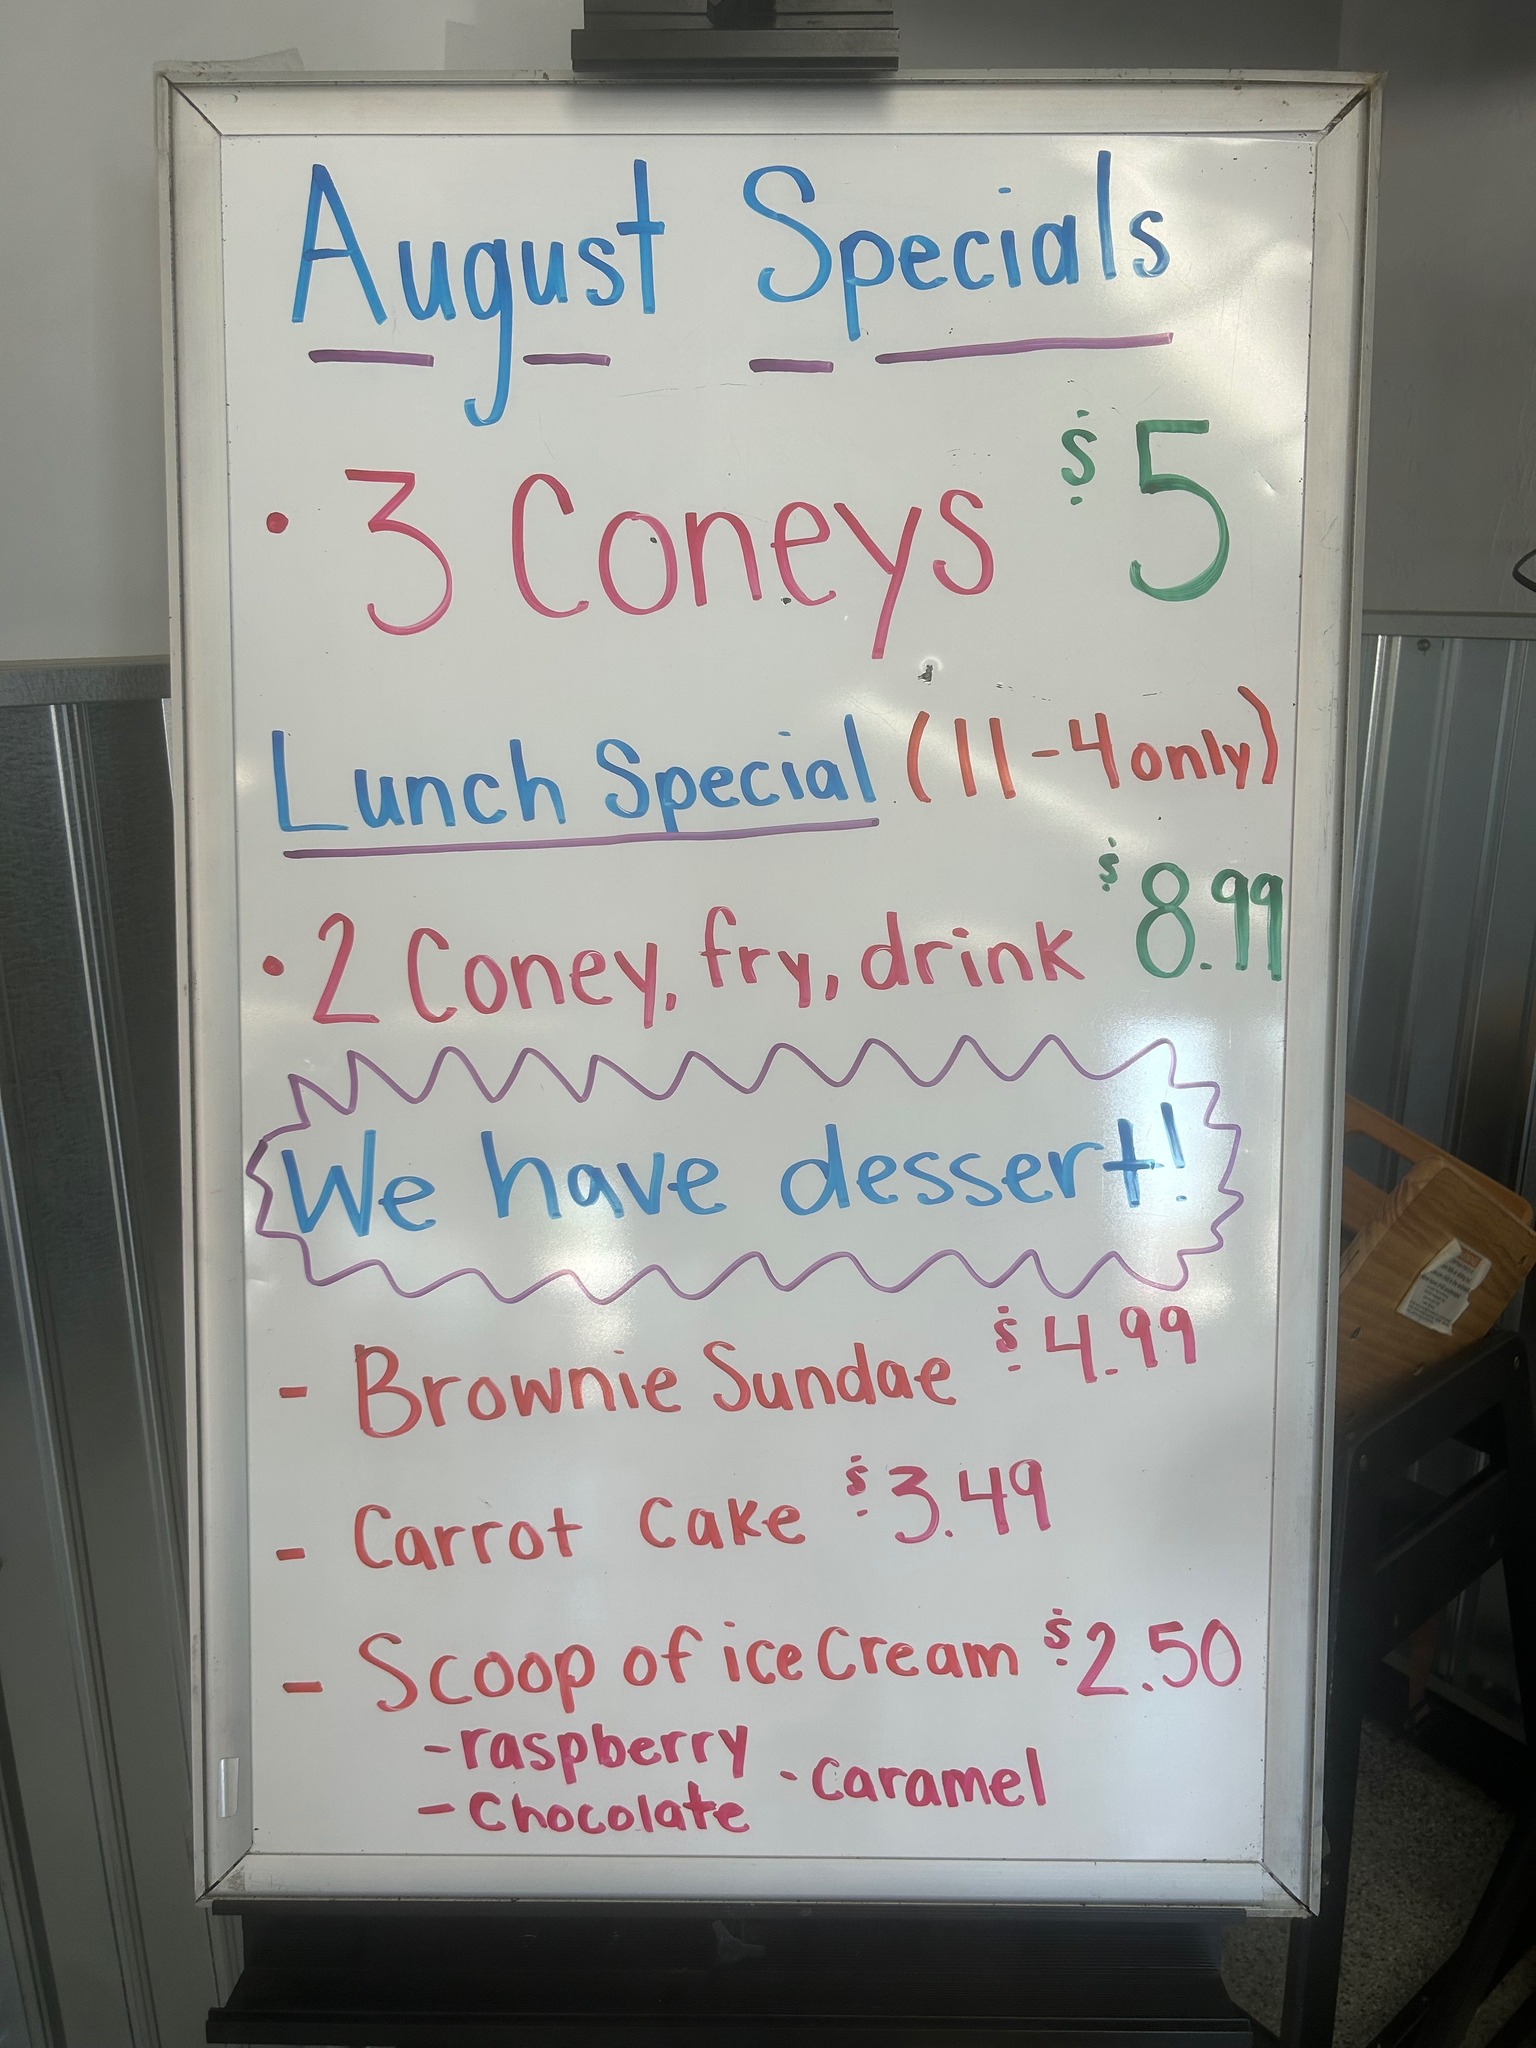 August Specials
• 3 Coneys $5
Lunch Special (11-4 only)
• 2 Coney, fry, drink $8.99
We have dessert!
- Brownie Sundae $4.99
- Carrot Cake $3.49
- Scoop of ice Cream $2.50
- raspberry
- Chocolate
- Caramel